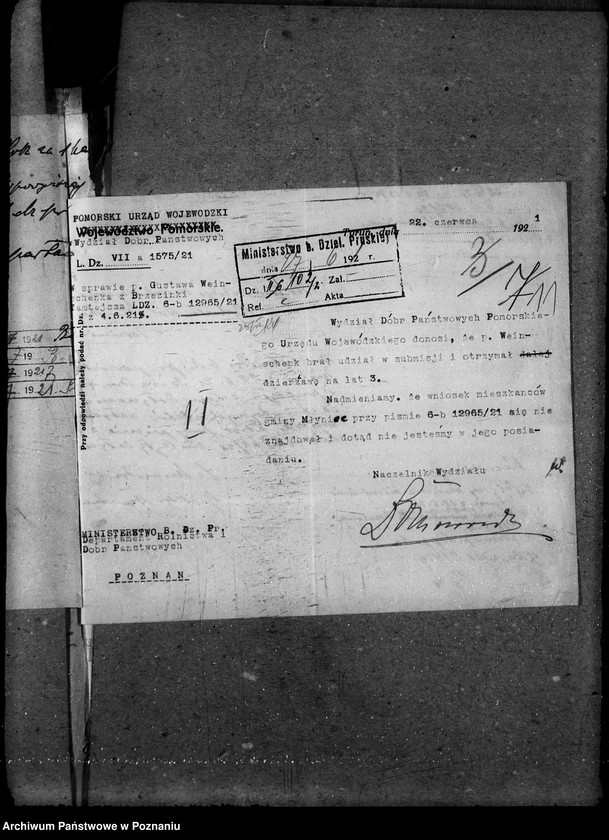 POMORSKI URZĄD WOJEWODZKI
Województwo Pomorskie.
Wydział Dobr Państwowych
L. Dz. VII a 1575/21
W sprawie p. Gustawa Wein-
schenka z Brzezinki
Tamtejsza LDZ. 6-b 12965/21
z 4.6.21
Przy odpowiedzi należy podać nr. Dz.
Toruń, dnia 22. czerwca 1921
Ministerstwo b. Dziel. Pruskiej
dnia 27/6 192 r.
Dz. Zal.
Ref. Akta
3/7 11
Wydział Dóbr Państwowych Pomorskie-
go Urzędu Wojewódzkiego donosi, że p. Wein-
schenk brał udział w submisji i otrzymał dalej
dzierżawę na lat 3.
Nadmieniamy, że wniosek mieszkańców
gminy Młynice przy piśmie 6-b 12965/21 się nie
znajdował i dotąd nie jesteśmy w jego posia-
daniu.
Naczelnik Wydziału
II
MINISTERSTWO B. Dz. Pr.
Departament Rolnistwa i
Dobr Panctwowych
POZNAN
Archiwum Państwowe w Poznaniu